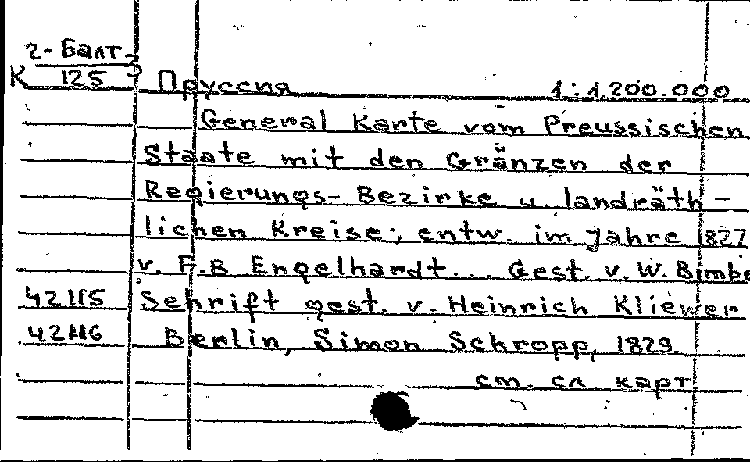 2-Балт-3
К 125 Пруссия 1:1,200.000
General Karte vom Preussischen
Staate mit den Gränzen der
Regierungs-Bezirke u. landräth-
lichen Kreise; entw. im Jahre 1827
v. F.B Engelhardt... Gest. v. W. Bimbe
42115 Schrift gest. v. Heinrich Kliewer
42116 Berlin, Simon Schropp, 1829
см. сл. карт